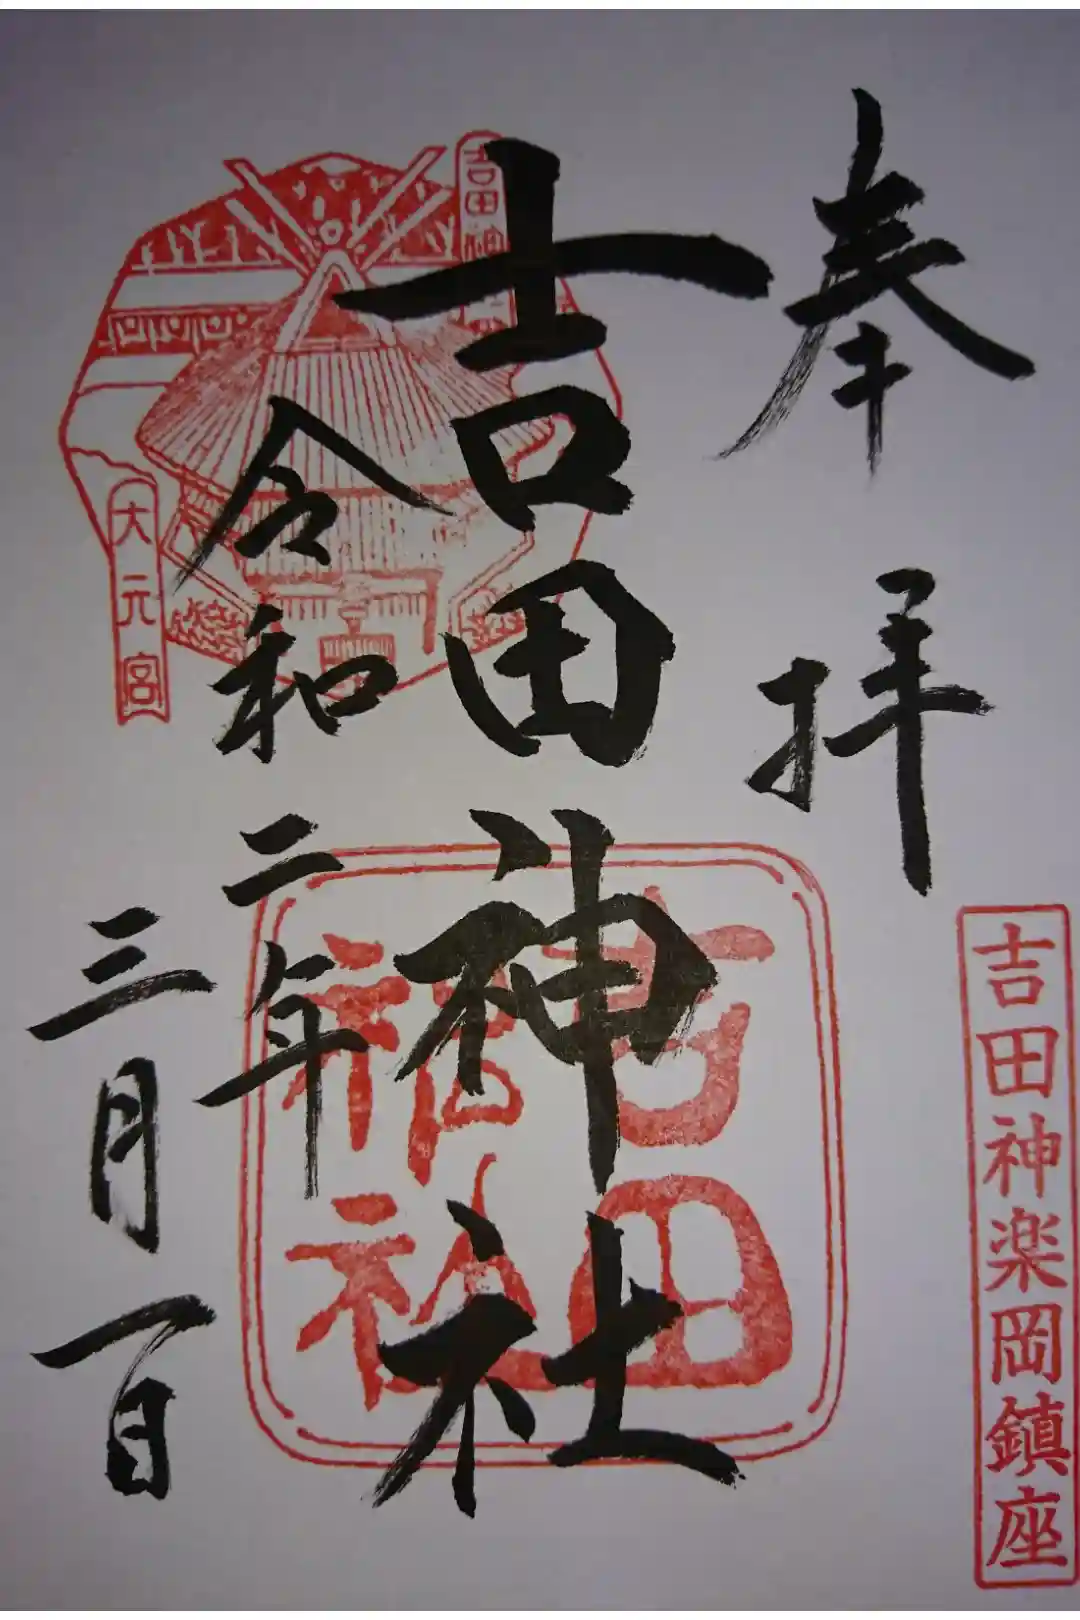 奉拝
吉田神楽岡鎮座
吉田神社
吉田
神社
吉田神
令和二年
大元宮
三月一日